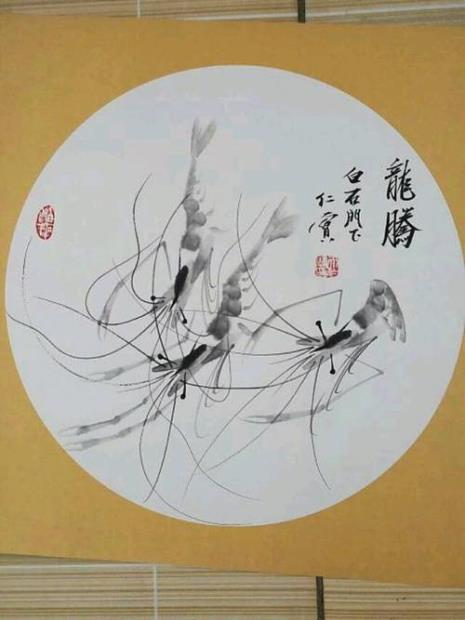 龍騰
白石門下
仁實